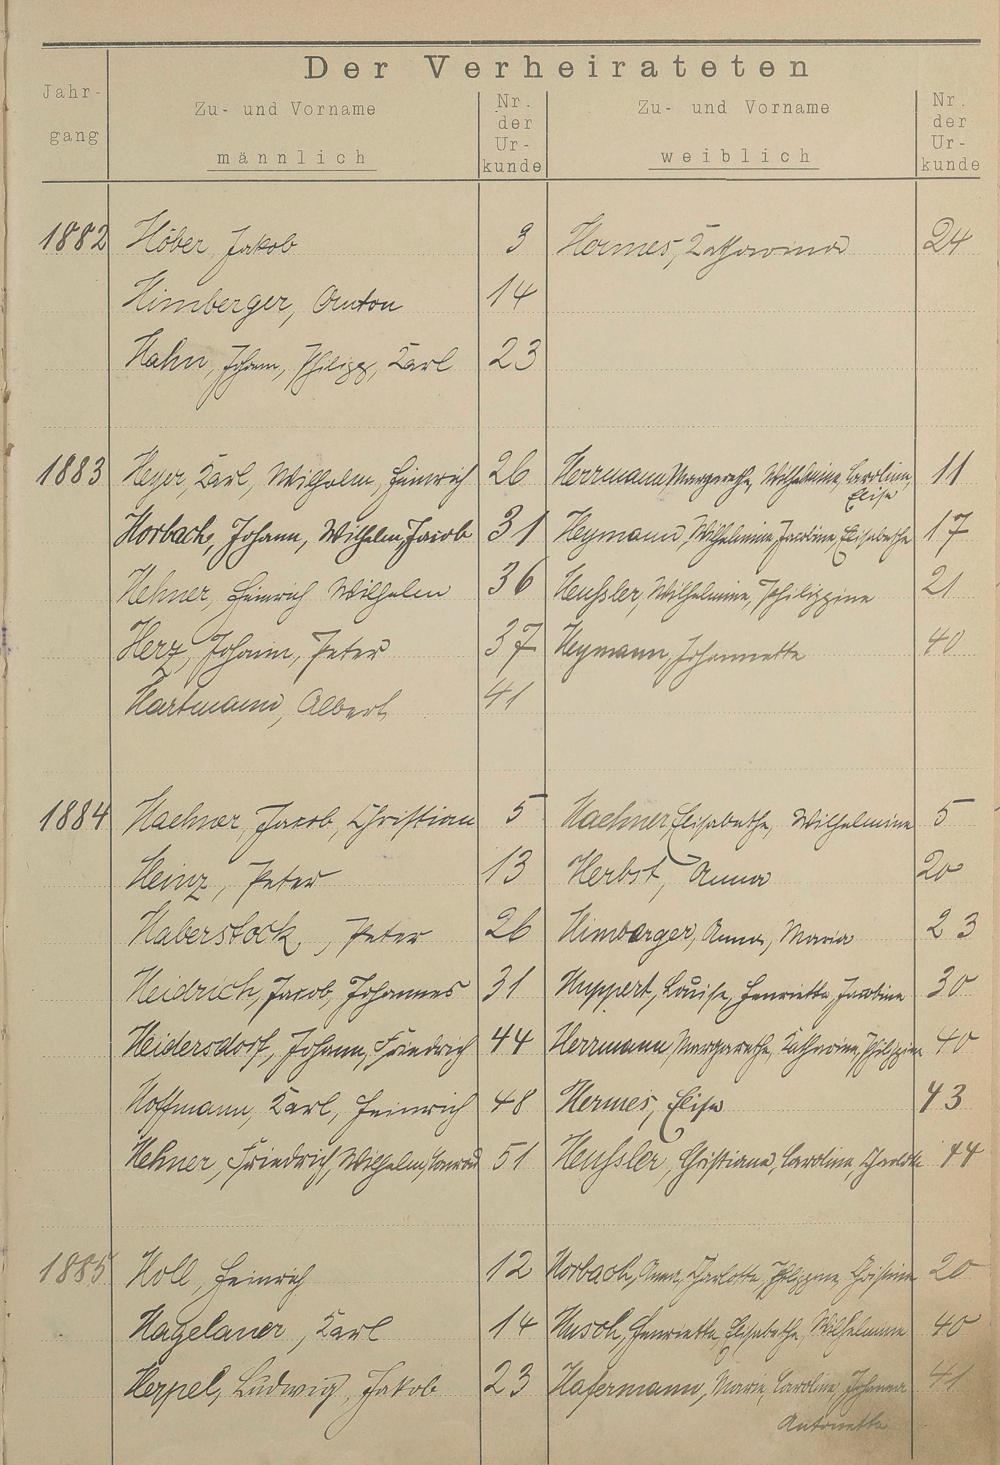 Der Verheirateten
Jahr-
gang
Zu- und Vorname
männlich
Nr.
der
Ur-
kunde
Zu- und Vorname
weiblich
Nr.
der
Ur-
kunde
1882 Höber, Jakob 9 Hermes, Katharina 24
Himberger, Anton 14
Hahn, Johann, Philipp, Karl 23
1883 Heyer, Karl, Wilhelm, Heinrich 26 Herrmann, Margarethe, Wilhelmine, Caroline, 11
Elise
Horbach, Johann, Wilhelm, Jacob 31 Heymann, Wilhelmine, Jacobine, Elisabethe 17
Hehner, Heinrich Wilhelm 36 Heußler, Wilhelmine, Philippine 21
Herz, Johann, Peter 37 Heymann, Johannette 40
Hartmann, Albert 41
1884 Haehner, Jacob, Christian 5 Haehner, Elisabethe, Wilhelmine 5
Heinz, Peter 13 Herbst, Anna 20
Haberstock, Peter 26 Himberger, Anna, Maria 23
Heidrich, Jacob, Johannes 31 Huppert, Louise, Henriette, Jacobine 30
Heidersdorf, Johann, Friedrich 44 Herrmann, Margarethe, Katharine, Philippine 40
Hoffmann, Karl, Heinrich 48 Hermes, Elise 43
Hehner, Friedrich, Wilhelm, Conrad 51 Heußler, Christiane, Caroline, Charlotte 44
1885 Holl, Heinrich 12 Horbach, Anna, Charlotte, Philippine, Christine 20
Hagelauer, Karl 14 Husch, Henriette, Elisabethe, Wilhelmine 40
Herpel, Ludwig, Jakob 23 Hafermann, Marie, Caroline, Johanna 41
Antonette